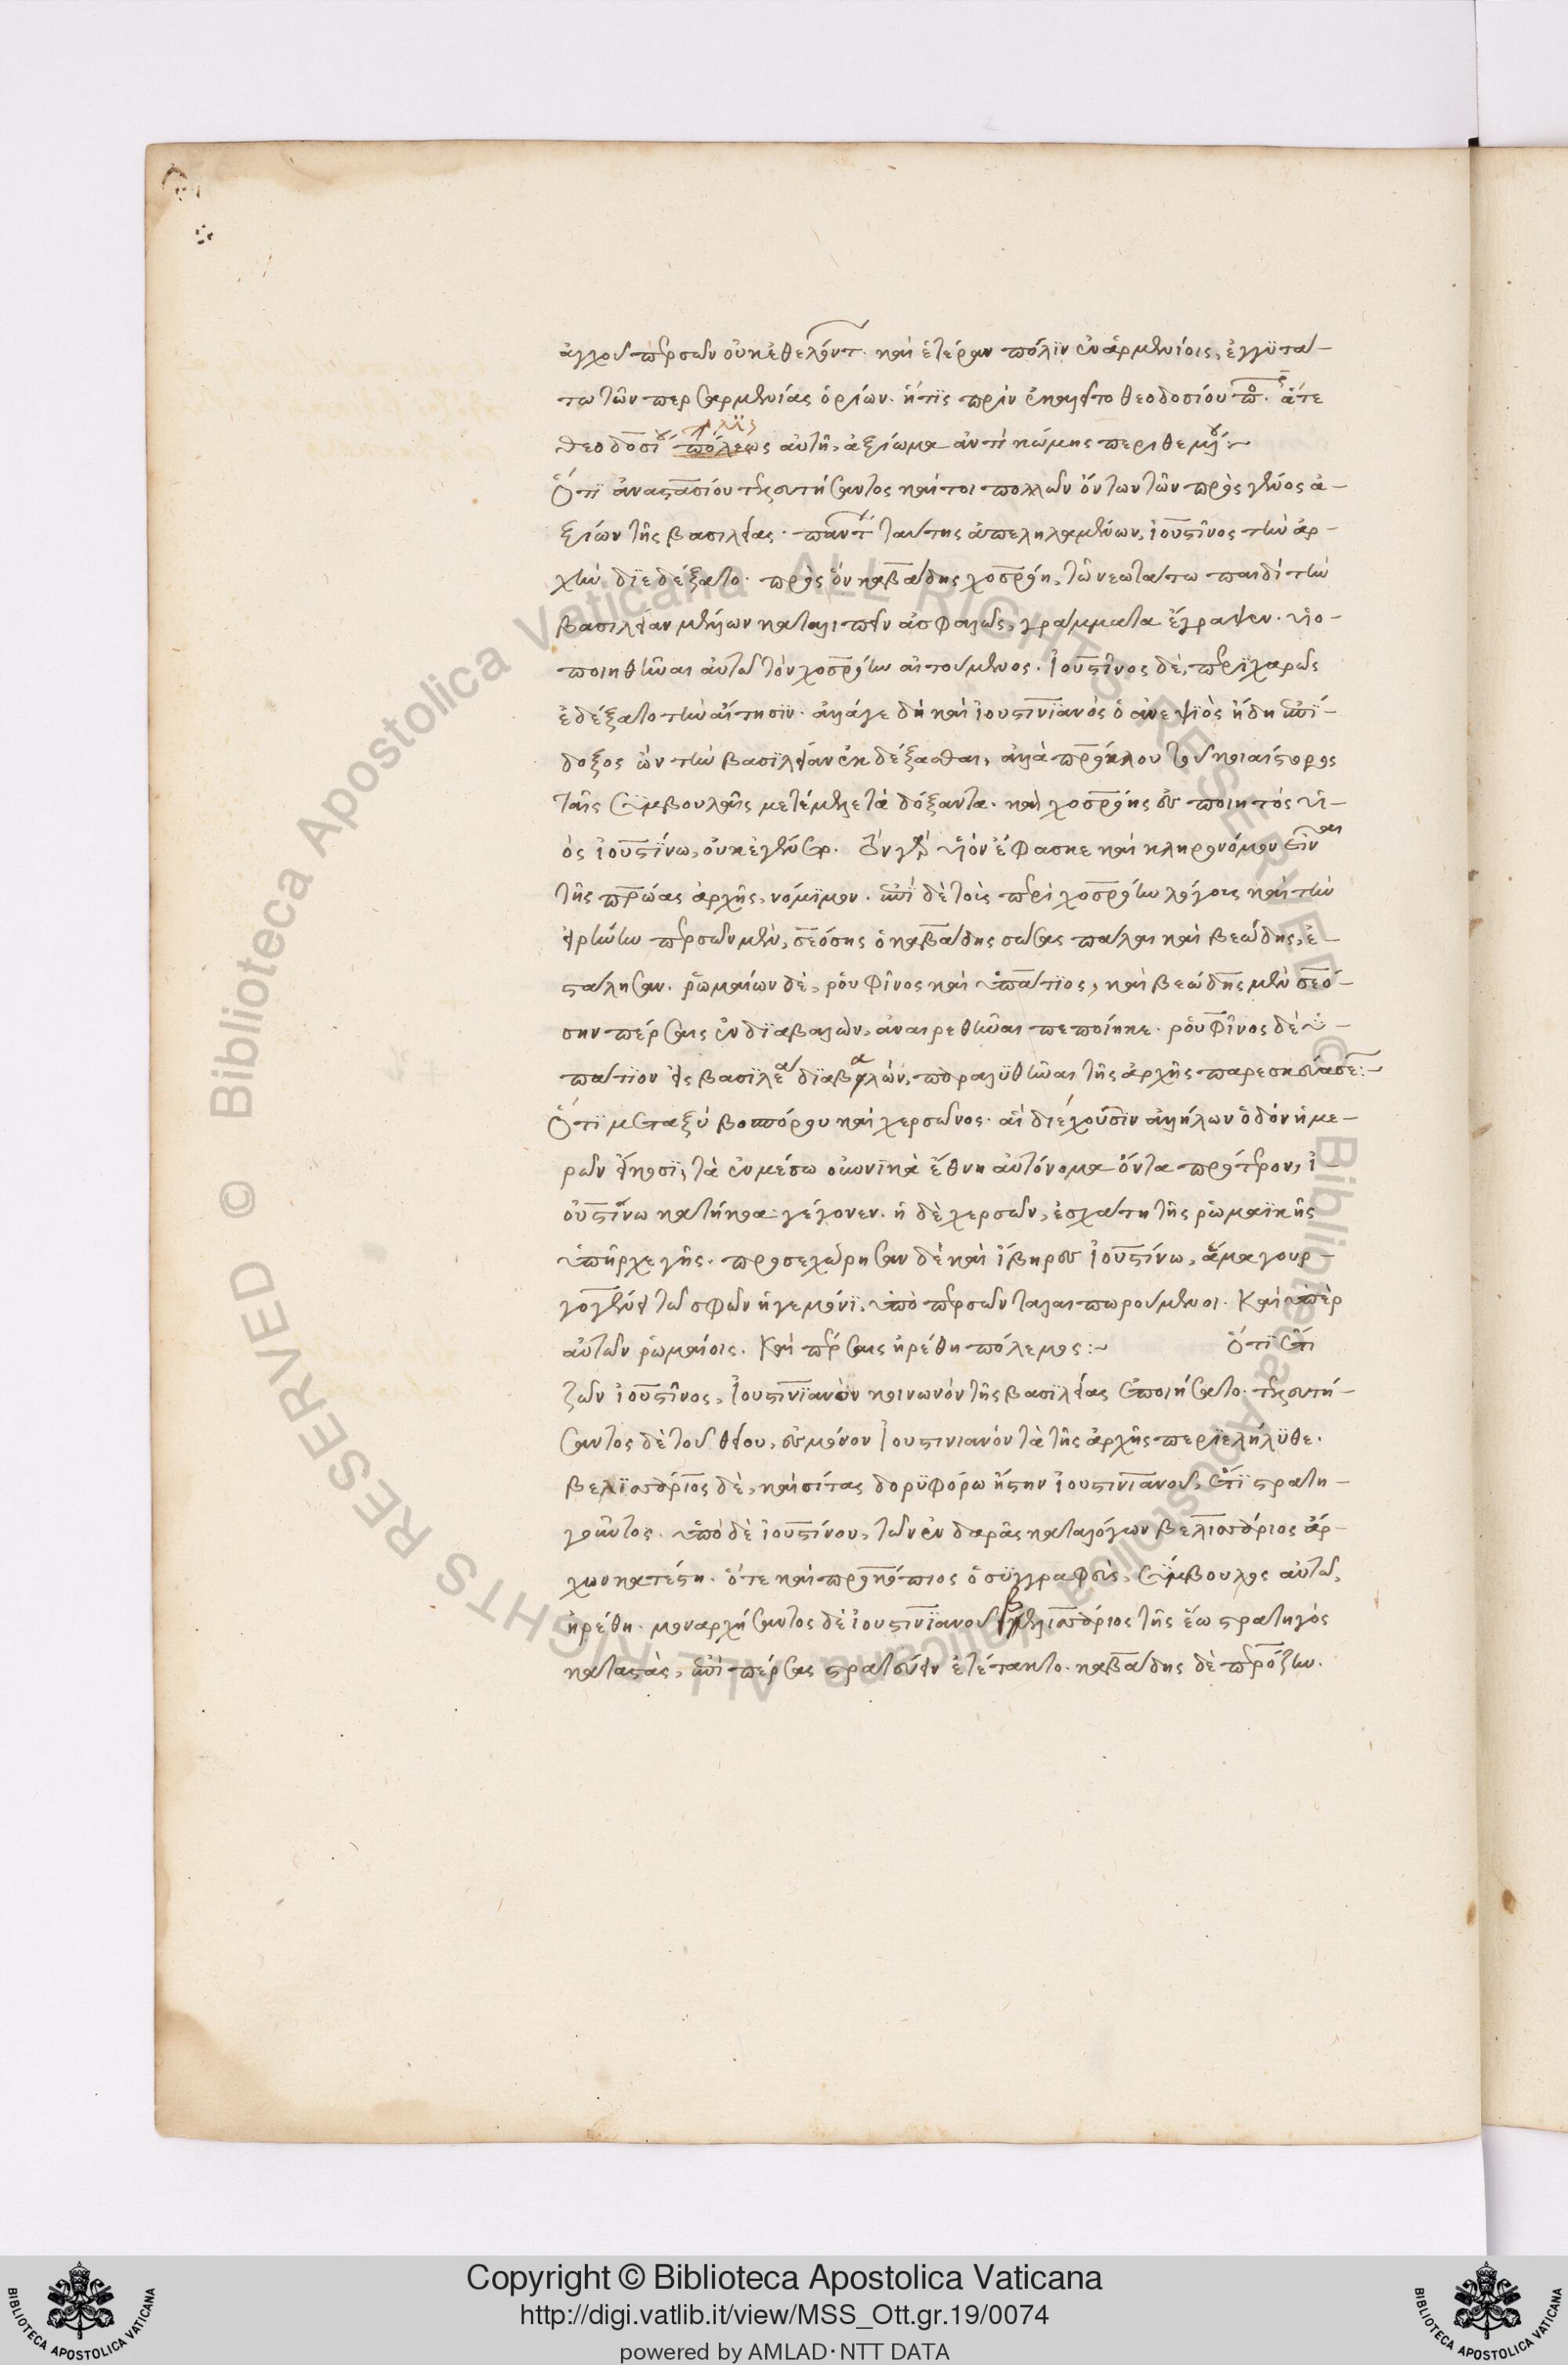 ἀγχοῦ περσῶν οὐκ ἐθελόντ. καὶ ἑτέραν πόλϊν ἐν ἀρμενίοις, ἐγγϋτά-
τω τῶν περσαρμενίας ὁρίων. ἥτϊς πρὶν ἐκαλεῖτο θεοδοσίου π. ἅτε
θεοδοσίου πόλεως αὐτῆ, ἀξίωμα ἀντὶ κώμης περιθεμένου:~
Ὅτϊ ἀναστασίου τελευτήσαντος καίτοι πολλῶν ὄντων τῶν πρὸς γένος ἀ-
ξίων τῆς βασιλείας. πάντων ταύτης ἀπεληλαμένων, ἰουστῖνος τὴν ἀρ-
χὴν δϊεδέξατο. πρὸς ὃν καβάδης χοσρόη, τῶ νεωτάτω παιδὶ τὴν
βασιλείαν μέλλων καταλιπεῖν ἀσφαλῶς, γράμματα ἔγραψεν. υἱο-
ποιηθῆναι αὐτῶ τὸν χοσρόην αἰτούμενος. ἰουστῖνος δὲ, περϊχαρῶς
ἐδέξατο τὴν αἴτησϊν. ἀλλά γε δὴ καὶ ἰουστινϊανὸς ὁ ἀνεψϊὸς ἤδη ἐπί-
δοξος ὢν τὴν βασϊλείαν ἐκδέξασθαι, ἀλλὰ πρόκλου τοῦ κοιαίστορος
ταῖς συμβουλαῖς μετέμελε τὰ δόξαντα. καὶ χοσρόης οὐ ποιητὸς υἱ-
ὸς ἰουστίνω, οὐκ ἐγένετο. ὃν γὰρ υἱὸν ἔφασκε καὶ κληρονόμον εἶναι
τῆς πατρώας ἀρχῆς, νόμϊμον. ἐπὶ δὲ τοῖς περὶ χοσρόην λόγοις καὶ τὴν
εἰρήνην περσῶν μὲν, σεόσης ὁ καβάδης σώσας πάλαι καὶ βεώδης, ἐ-
στάλησαν. ῥωμαίων δὲ, ῥουφῖνος καὶ ὑπάτϊος, καὶ βεώδης μὲν σεό-
σην πέρσαις ἐνδϊαβαλὼν, ἀναιρεθῆναι πεποίηκε. ῥουφῖνος δὲ ὑ-
πάτϊον εἰς βασϊλέα δϊαβαλὼν, παραλϋθῆναι τῆς ἀρχῆς παρεσκεύασε:~
Ὅτϊ μεταξὺ βοσπόρου καὶ χερσῶνος. αἳ διέχουσϊν ἀλλήλων ὁδὸν ἡμε-
ρῶν εἴκοσϊ, τὰ ἐν μέσω οὐωνϊκὰ ἔθνη αὐτόνομα ὄντα πρότερον, ἰ-
ουστίνω κατήκοα γέγονεν. ἡ δὲ χερσὼν, ἐσχάτη τῆς ῥωμαϊκῆς
ὑπῆρχε γῆς. προσεχώρησαν δὲ καὶ ἴβηρες ἰουστίνω, ἅμα γουρ-
γογένει τῶ σφῶν ἡγεμόνϊ, ὑπὸ περσῶν ταλαιπωρούμενοι. Καὶ ὑπὲρ
αὐτῶν ῥωμαίοις. Καὶ πέρσαις ἠρέθη πόλεμος:~ Ὅτϊ ἔτι
ζῶν ἰουστῖνος, ἰουστινϊανὸν κοινωνὸν τῆς βασϊλείας ἐποιήσατο. τελευτή-
σαντος δὲ τοῦ θείου, ἐς μόνον ἰουστινιανὸν τὰ τῆς ἀρχῆς περϊελήλϋθε.
βελϊσάριος δὲ, καὶ σίτας δορϋφόρω ἤστην ἰουστινιανοῦ, ἔτϊ στρατη-
γοῦντος. ὑπὸ δὲ ἰουστίνου, τῶν ἐν δαρὰς καταλόγων βελισάριος ἄρ-
χων κατέστη. ὅτε καὶ προκόπιος ὁ σϋγγραφεὺς, σύμβουλος αὐτῶ,
ἡρέθη. μοναρχήσαντος δὲ ἰουστινϊανοῦ βελισάριος τῆς ἕω στρατηγὸς
καταστὰς, ἐπὶ πέρσας στρατεύειν ἐτέτακτο. καβάδης δὲ περόζην.
Copyright © Biblioteca Apostolica Vaticana
http://digi.vatlib.it/view/MSS_Ott.gr.19/0074
powered by AMLAD·NTT DATA